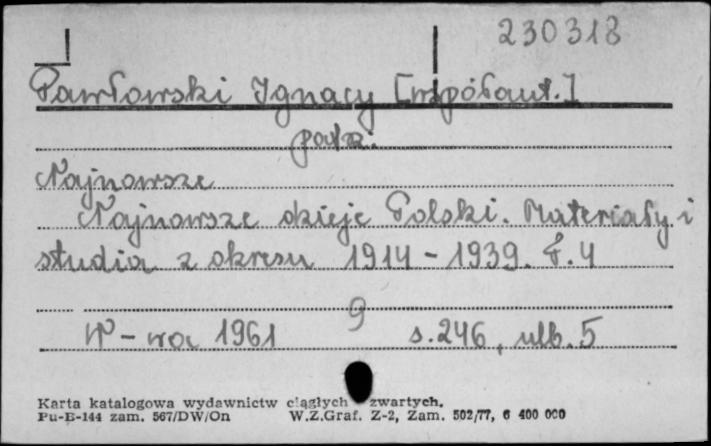 230318
Pawłowski Ignacy [współaut.]
patrz:
Najnowsze
Najnowsze dzieje Polski. Materiały i
studia z okresu 1914 - 1939. t. 4
9
W-wa 1961 s. 246, nlb. 5
Karta katalogowa wydawnictw ciągłych zwartych.
Pu-B-144 zam. 567/DW/On W.Z.Graf. Z-2, Zam. 502/77, 6 400 000